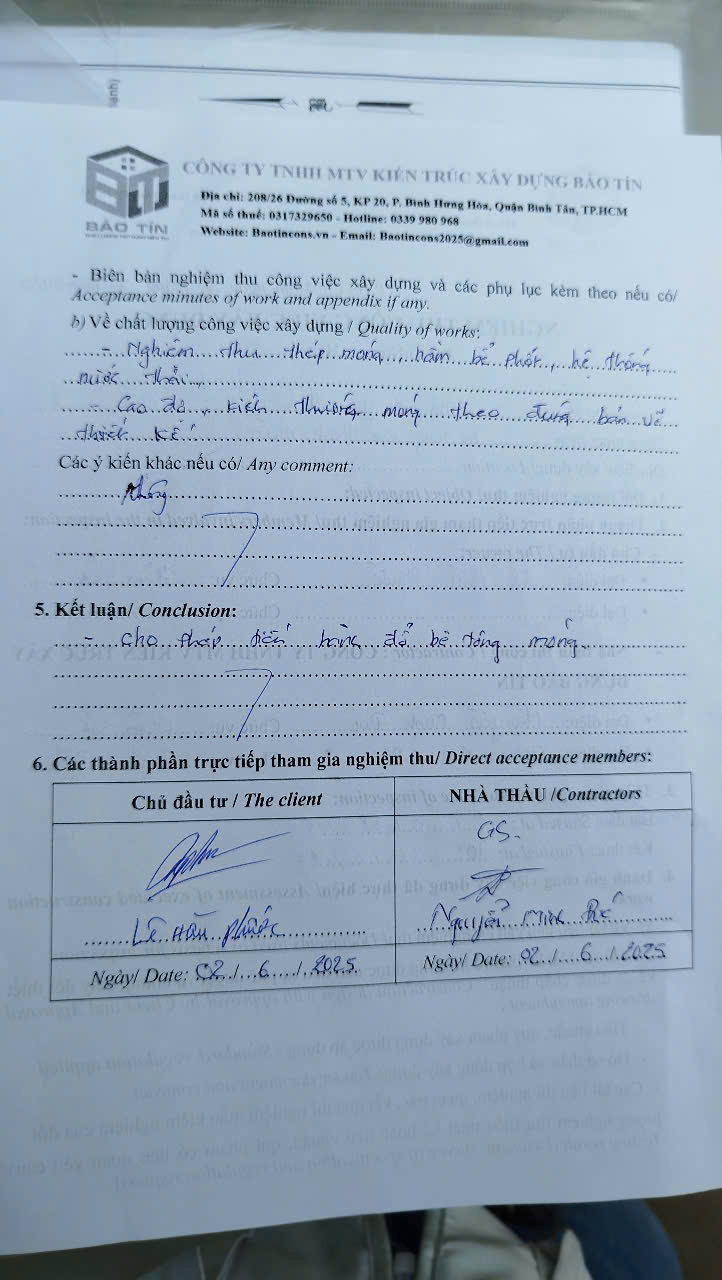 CÔNG TY TNHH MTV KIẾN TRÚC XÂY DỰNG BẢO TÍN
Địa chỉ: 208/26 Đường số 5, KP 20, P. Bình Hưng Hòa, Quận Bình Tân, TP.HCM
Mã số thuế: 0317329650 - Hotline: 0339 980 968
Website: Baotincons.vn - Email: Baotincons2025@gmail.com
BẢO TÍN
- Biên bản nghiệm thu công việc xây dựng và các phụ lục kèm theo nếu có/
Acceptance minutes of work and appendix if any.
b) Về chất lượng công việc xây dựng / Quality of works:
- Nghiệm thu thép móng, hầm bể phốt, hệ thống
nước thải.
- Cao độ, kích thước móng theo đúng bản vẽ
thiết kế
Các ý kiến khác nếu có/ Any comment:
Không
5. Kết luận/ Conclusion:
- Cho phép tiến hành đổ bê tông móng.
6. Các thành phần trực tiếp tham gia nghiệm thu/ Direct acceptance members:
Chủ đầu tư / The client
NHÀ THẦU /Contractors
GS.
Lê Hữu Phước
Nguyễn Minh
Ngày/ Date: 02/6/2025
Ngày/ Date: 02/6/2025